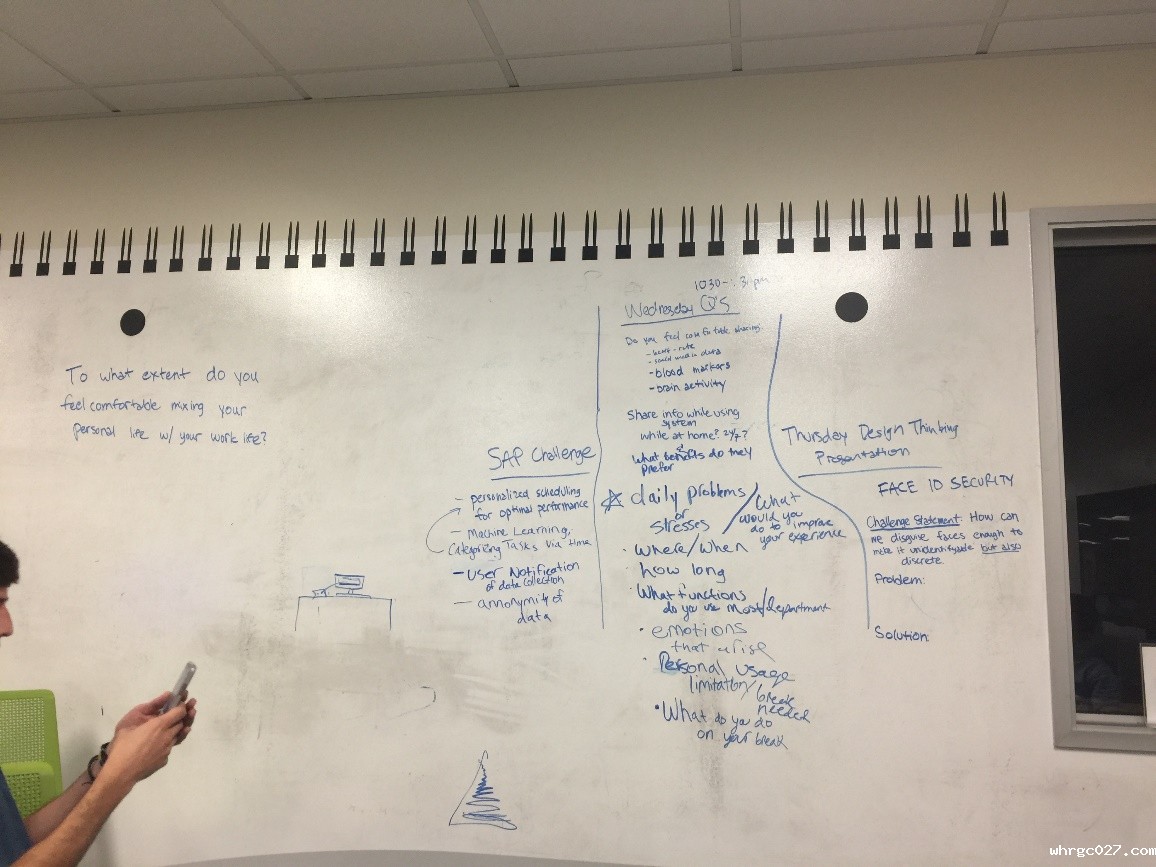 To what extent do you
feel comfortable mixing your
personal life w/ your work life?
SAP Challenge
- personalized scheduling
for optimal performance
- Machine Learning,
Categorizing Tasks via time
- User Notification
of data collection
- annonymity of
data
1030-
Wednesday Q's
Do you feel comfortable sharing
- heart-rate
- social media data
- blood markers
- brain activity
Share info while using
system
while at home? 24/7?
What benefits do they
prefer
daily problems/
or
stresses
What
would you
do to improve
your experience
· Where/When
how long
· What functions
do you use most/department
· emotions
that arise
· Personal usage
limitation/break
needed
· What do you do
on your break
Thursday Design Thinking
Presentation
FACE ID SECURITY
Challenge Statement: How can
we disguise faces enough to
make it unidentifiable but also
discrete.
Problem:
Solution:
whrgc027.com